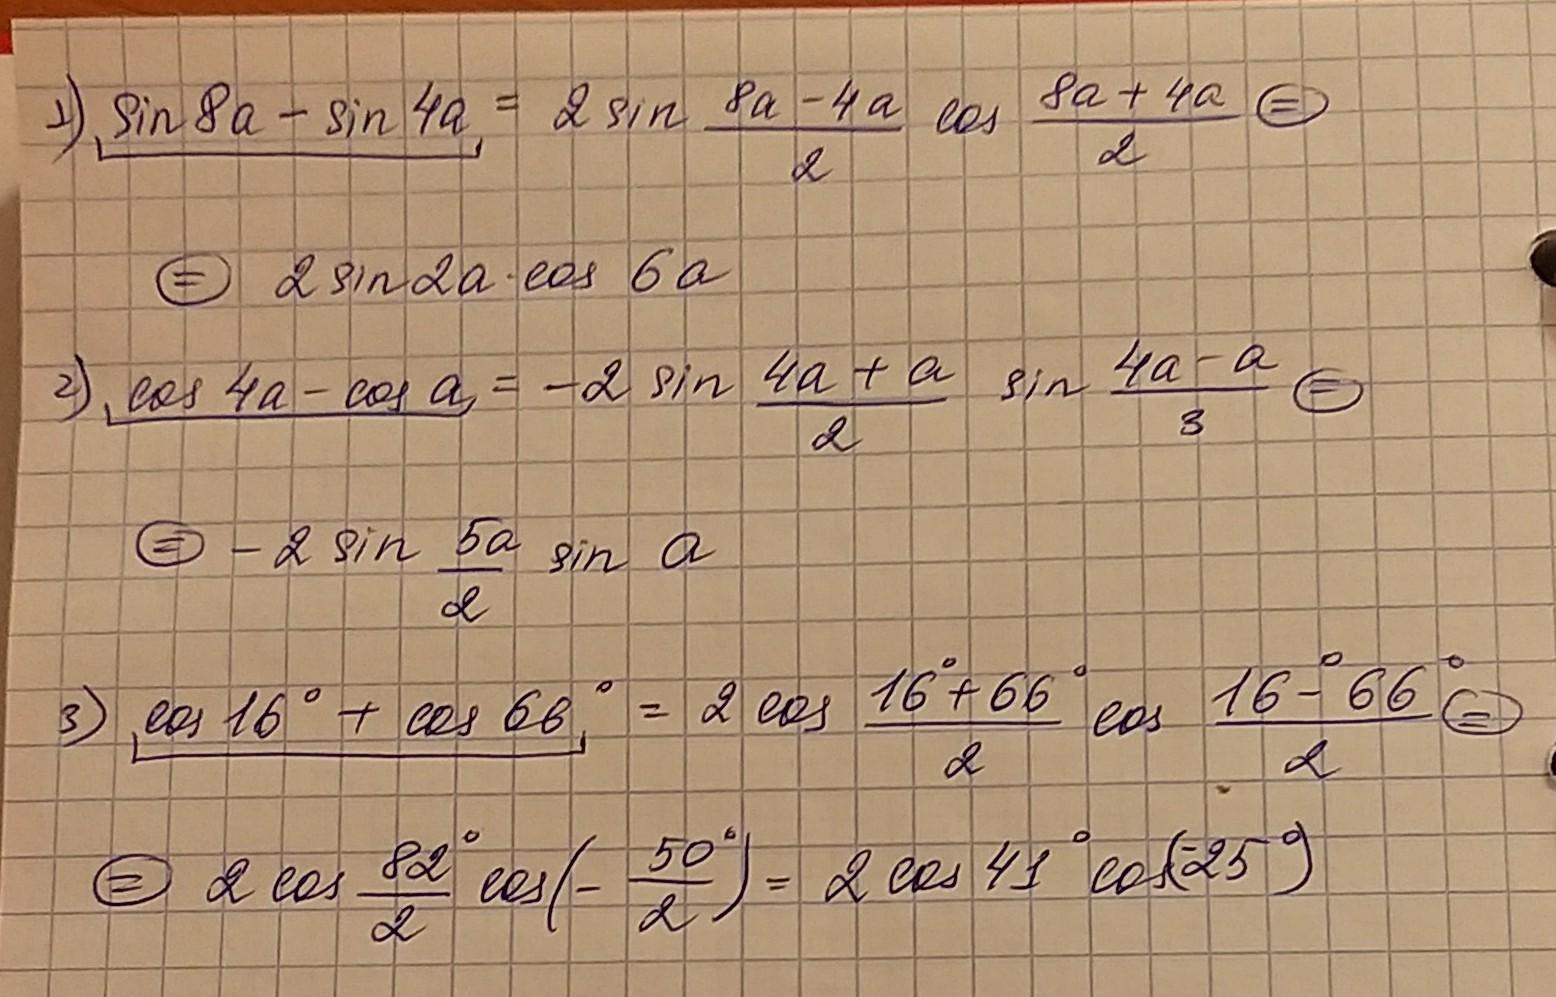 1) sin 8a - sin 4a = 2 sin (8a - 4a)/2 cos (8a + 4a)/2 =
= 2 sin 2a · cos 6a
2) cos 4a - cos a = -2 sin (4a + a)/2 sin (4a - a)/3 =
= -2 sin 5a/2 sin a
3) cos 16° + cos 66° = 2 cos (16° + 66°)/2 cos (16 -° 66°)/2 =
= 2 cos 82°/2 cos(- 50°/2) = 2 cos 41° cos(-25°)